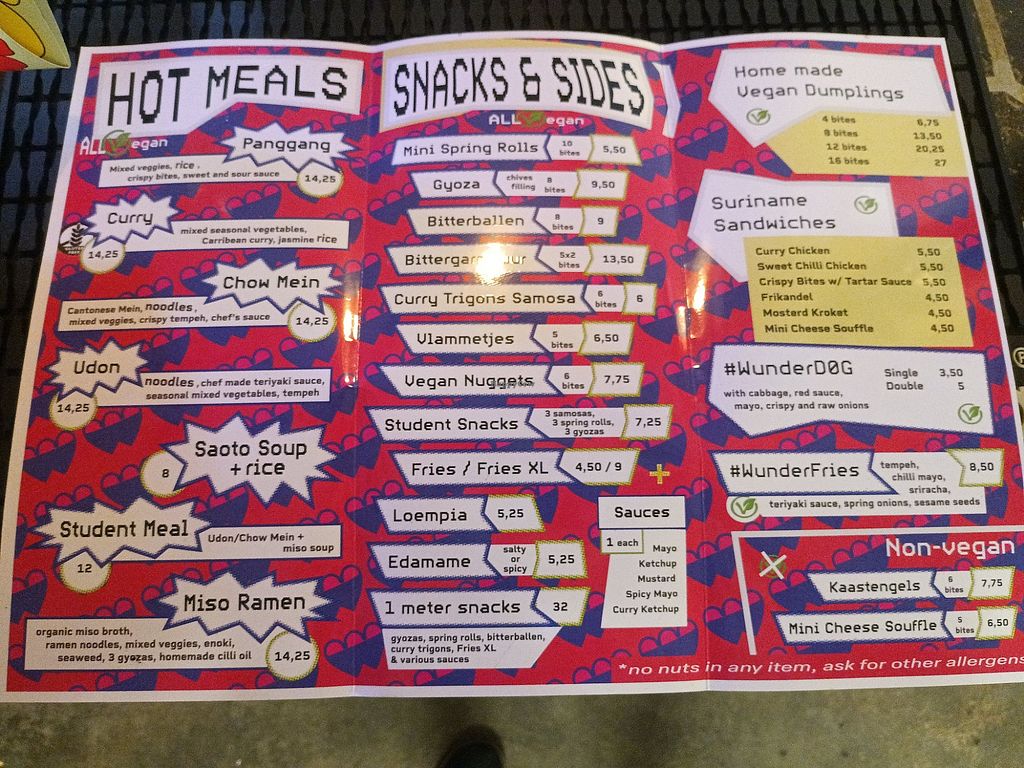 HOT MEALS
ALL Vegan
Panggang
Mixed veggies, rice,
crispy bites, sweet and sour sauce
14,25
Curry
mixed seasonal vegetables,
Carribean curry, jasmine rice
14,25
Chow Mein
Cantonese Mein, noodles,
mixed veggies, crispy tempeh, chef's sauce
14,25
Udon
noodles, chef made teriyaki sauce,
seasonal mixed vegetables, tempeh
14,25
Saoto Soup
+ rice
8
Student Meal
Udon/Chow Mein +
miso soup
12
Miso Ramen
organic miso broth,
ramen noodles, mixed veggies, enoki,
seaweed, 3 gyozas, homemade cilli oil
14,25
SNACKS & SIDES
ALL Vegan
Mini Spring Rolls 10 bites 5,50
Gyoza chives filling 8 bites 9,50
Bitterballen 8 bites 9
5x2 bites 13,50
Curry Trigons Samosa 6 bites 6
Vlammetjes 5 bites 6,50
Vegan Nuggets 6 bites 7,75
Student Snacks 3 samosas, 3 spring rolls, 3 gyozas 7,25
Fries / Fries XL 4,50 / 9
+
Loempia 5,25
Edamame salty or spicy 5,25
1 meter snacks 32
gyozas, spring rolls, bitterballen,
curry trigons, Fries XL
& various sauces
Sauces
1 each
Mayo
Ketchup
Mustard
Spicy Mayo
Curry Ketchup
Home made
Vegan Dumplings
4 bites 6,75
8 bites 13,50
12 bites 20,25
16 bites 27
Suriname
Sandwiches
Curry Chicken 5,50
Sweet Chilli Chicken 5,50
Crispy Bites w/ Tartar Sauce 5,50
Frikandel 4,50
Mosterd Kroket 4,50
Mini Cheese Souffle 4,50
#WunderD0G
Single 3,50
Double 5
with cabbage, red sauce,
mayo, crispy and raw onions
#WunderFries
tempeh,
chilli mayo,
sriracha,
teriyaki sauce, spring onions, sesame seeds
8,50
Non-vegan
Kaastengels 6 bites 7,75
Mini Cheese Souffle 5 bites 6,50
*no nuts in any item, ask for other allergens